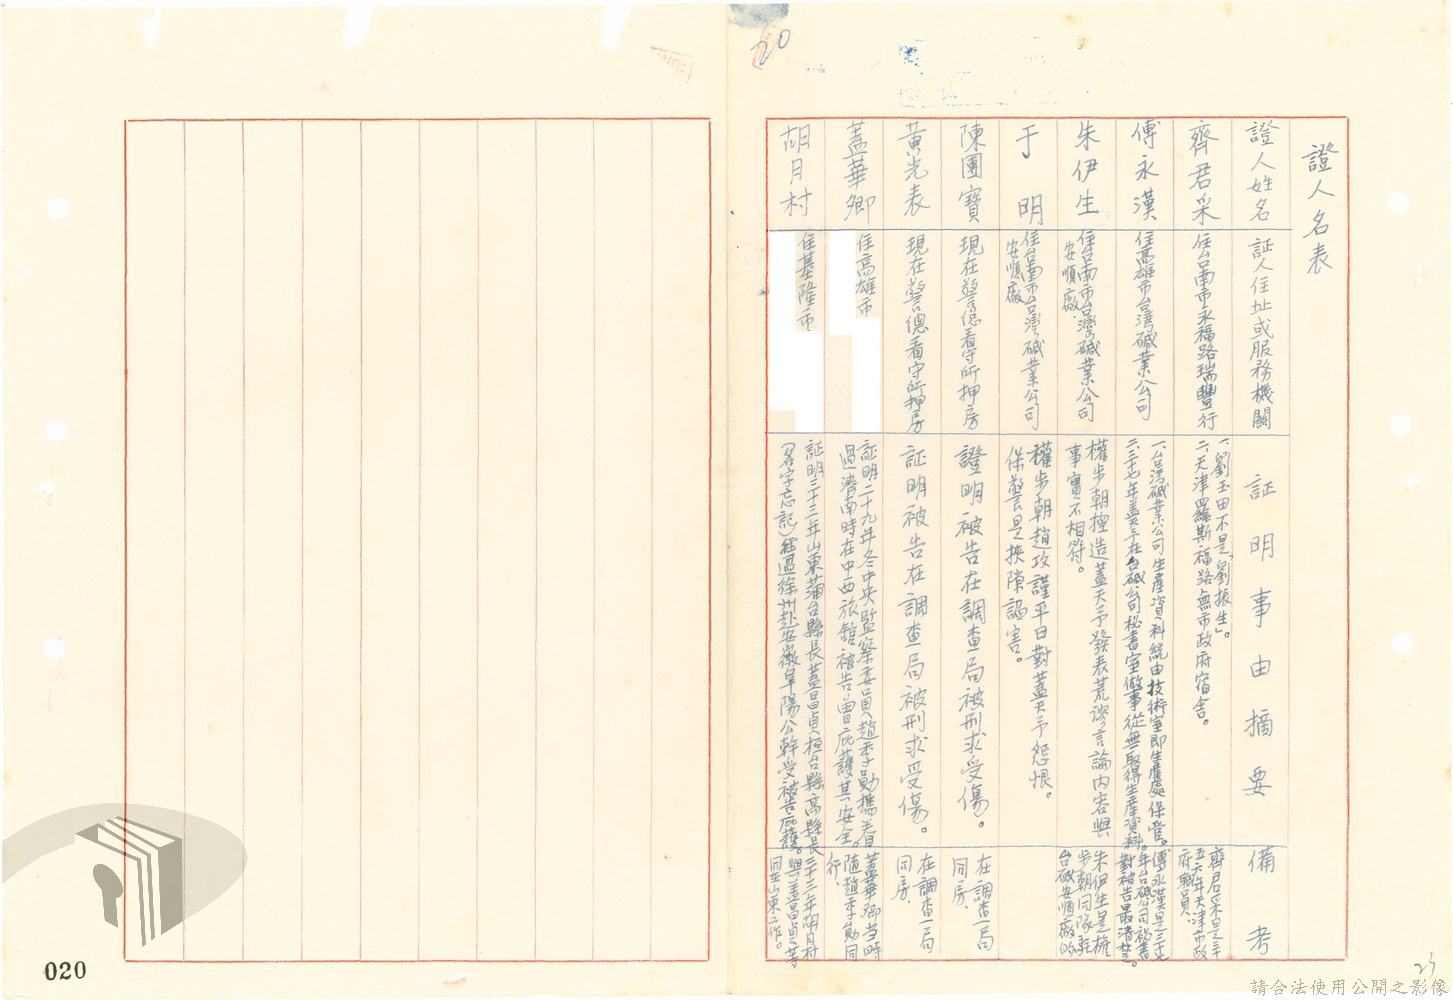 20
證人名表
證人姓名
証人住址或服務機關
証明事由摘要
備考
齊君采
住台南市永福路瑞豐行
一、劉玉田不是「劉振生」。
二、天津羅斯福路無市政府宿舍。
齊君采是三十
五六年天津市政
府職員、
傅永漢
住高雄市台灣碱業公司
一、台灣碱業公司生產資料統由技術室即生產處保管。
二、三十七年蓋天予在台碱公司秘書室做事從無取得生產資料。
傅永漢是三七
年台碱公司秘書
對被告最清楚。
朱伊生
住台南市台灣碱業公司
安順廠、
權步朝揑造蓋天予發表荒謬言論內容與
事實不相符。
朱伊生是權
步朝同隊駐
台碱安順廠的
于明
住台南市台灣碱業公司
安順廠
權步朝趙攻謹平日對蓋天予怨恨。
保警是挾隙謟害。
陳團寶
現在警總看守所押房
證明被告在調查局被刑求受傷。
在調查局
同房、
黃光表
現在警總看守所押房
証明被告在調查局被刑求受傷。
在調查局
同房、
蓋華卿
住高雄市
証明二十九年冬中央監察委員趙季勛攜眷
過濟南時在中西旅館被告曾庇護其安全。
蓋華卿當時
隨趙季勛同
行、
胡月村
住基隆市
証明三十三年山東蒲台縣長蓋昌貞桓台縣高縣長
(名字忘記)經過徐州赴安徽阜陽公幹受被告庇護。
三十三年胡月村
與蓋昌貞等
同在山東工作。
23
020
請合法使用公開之影像